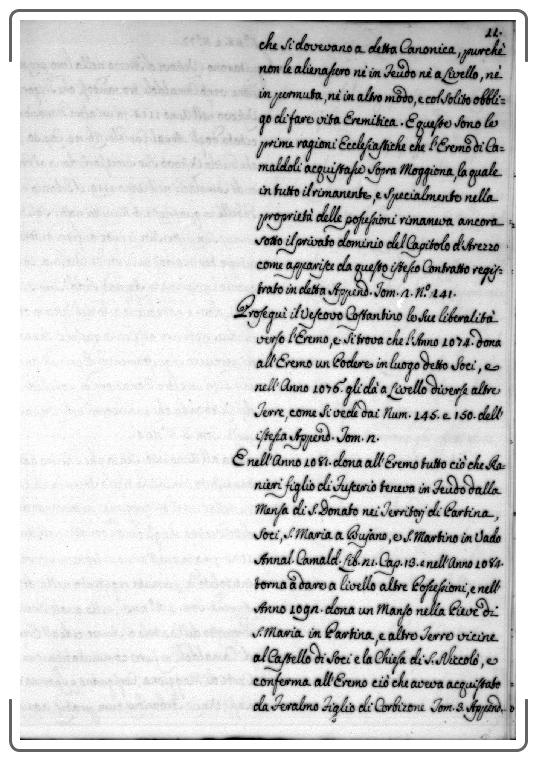 11.
che si dovevano a detta Canonica, purchè
non le alienassero nè in Feudo nè a Livello, nè
in permuta, nè in altro modo, e col solito obbli-
go di fare vita Eremitica. E queste sono le
prime ragioni Ecclesiastiche che l'Eremo di Ca-
maldoli acquistasse sopra Moggiona, la quale
in tutto il rimanente, e specialmente nella
proprietà delle possessioni rimaneva ancora
sotto il privato dominio del Capitolo d'Arezzo
come apparisce da questo istesso Contratto regis-
trato in detta Append. Tom. n. N.º 141.
Proseguì il Vescovo Costantino le sue liberalità
verso l'Eremo, e si trova che l'Anno 1074. dona
all'Eremo un Podere in luogo detto Soci, e
nell'Anno 1076. gli dà a Livello diverse altre
Terre, come si vede dai Num. 145. e 150. dell'
istessa Append. Tom. n.
E nell'Anno 1081. dona all'Eremo tutto ciò che Ra-
nieri figlio di Fuscerio teneva in Feudo dalla
Mensa di S. Donato nei Territorj di Partina,
Soci, S. Maria a Bujano, e S. Martino in Vado
Annal. Camald. Lib. n1. Cap. 13. e nell'Anno 1084.
torna a dare a livello altre Possessioni, e nell'
Anno 109n. dona un Manso nella Pieve di
S. Maria in Partina, e altre Terre vicine
al Castello di Soci e la Chiesa di S. Niccolò, e
conferma all'Eremo ciò che aveva acquistato
da Feralmo Figlio di Corbizone Tom. 3. Append.